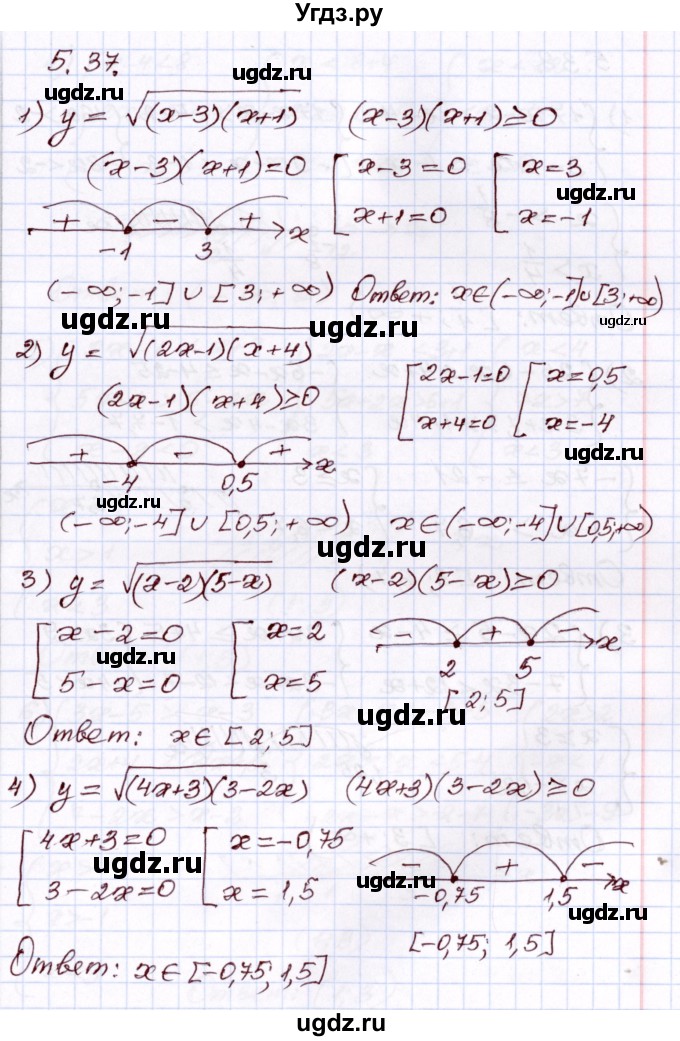 Угдз.ру
5.37.
ugdz.ru ugdz.ru
1) y = √(x-3)(x+1)   (x-3)(x+1)≥0
(x-3)(x+1)=0   [ x-3=0   [ x=3
ugdz.ru
x+1=0   x=-1
+ - + x
-1 3
(-∞;-1]∪[3;+∞)   Ответ: x∈(-∞;-1]∪[3;+∞)
ugdz.ru ugdz.ru ugdz.ru
2) y = √(2x-1)(x+4)
(2x-1)(x+4)≥0   [ 2x-1=0   [ x=0,5
x+4=0   x=-4
ugdz.ru
+ - + x
-4 0,5
ugdz.ru
(-∞;-4]∪[0,5;+∞)   x∈(-∞;-4]∪[0,5;+∞)
ugdz.ru
3) y = √(x-2)(5-x)   (x-2)(5-x)≥0
[ x-2=0   [ x=2   - + - x
ugdz.ru
5-x=0   x=5   2 5
[2;5]
ugdz.ru
Ответ: x∈[2;5]
4) y = √(4x+3)(3-2x)   (4x+3)(3-2x)≥0
[ 4x+3=0   [ x=-0,75
ugdz.ru
3-2x=0   x=1,5   - + - x
ugdz.ru
-0,75 1,5
ugdz.ru
[-0,75; 1,5]
Ответ: x∈[-0,75; 1,5]
ugdz.ru